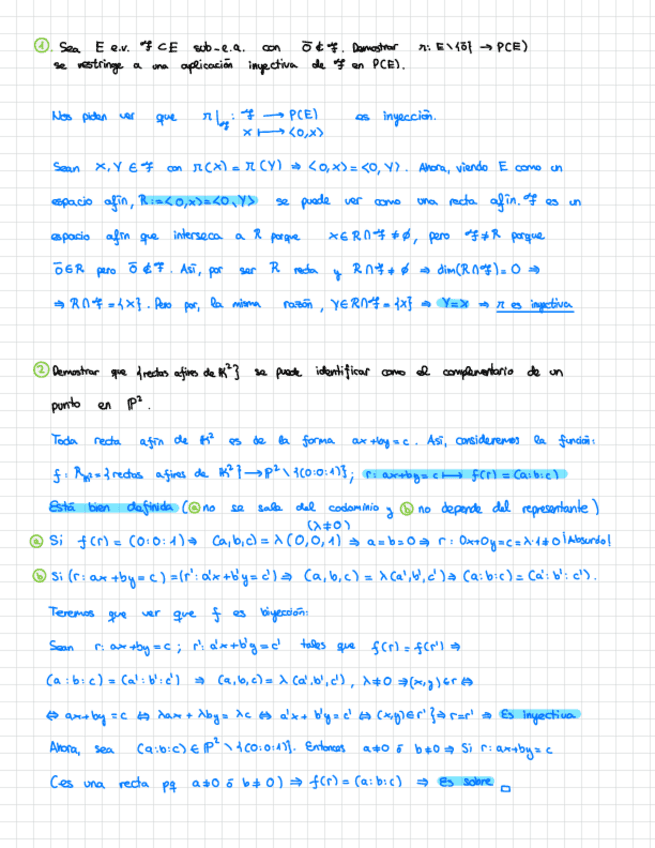 ① Sea E e.v. ℱ ⊂ E sub-e.a. con 0̄ ∉ ℱ. Demostrar π: E∖{0̄} → P(E)
se restringe a una aplicación inyectiva de ℱ en P(E).
Nos piden ver que π|ℱ : ℱ ⟶ P(E) es inyección.
x ⟼ <0,x>
Sean x, y ∈ ℱ con π(x) = π(y) ⇒ <0,x> = <0,y>. Ahora, viendo E como un
espacio afín, R := <0,x> = <0,y> se puede ver como una recta afín. ℱ es un
espacio afín que interseca a R porque x ∈ R∩ℱ ≠ ∅, pero ℱ ≠ R porque
0̄ ∈ R pero 0̄ ∉ ℱ. Así, por ser R recta y R∩ℱ ≠ ∅ ⇒ dim(R∩ℱ) = 0 ⇒
⇒ R∩ℱ = {x}. Pero por, la misma razón, y ∈ R∩ℱ = {x} ⇒ y = x ⇒ π es inyectiva
② Demostrar que {rectas afines de 𝕂²} se puede identificar como el complementario de un
punto en ℙ².
Toda recta afín de 𝕂² es de la forma ax + by = c. Así, consideremos la función:
f: R𝕂² = {rectas afines de 𝕂²} → ℙ² ∖ {(0:0:1)}; r: ax+by = c ⟼ f(r) = (a:b:c)
Está bien definida (ⓐ no se sale del codominio y ⓑ no depende del representante)
(λ≠0)
ⓐ Si f(r) = (0:0:1) ⇒ (a,b,c) = λ(0,0,1) ⇒ a=b=0 ⇒ r: 0x+0y = c = λ·1 ≠ 0 ¡Absurdo!
ⓑ Si (r: ax+by = c) = (r': a'x+b'y = c') ⇒ (a,b,c) = λ(a',b',c') ⇒ (a:b:c) = (a':b':c').
Tenemos que ver que f es biyección:
Sean r: ax+by = c ; r': a'x+b'y = c' tales que f(r) = f(r') ⇒
(a:b:c) = (a':b':c') ⇒ (a,b,c) = λ(a',b',c'), λ≠0 ⇒ (x,y) ∈ r ⇔
⇔ ax+by = c ⇔ λax + λby = λc ⇔ a'x + b'y = c' ⇔ (x,y) ∈ r' } ⇒ r = r' ⇒ Es inyectiva
Ahora, sea (a:b:c) ∈ ℙ² ∖ {(0:0:1)}. Entonces a≠0 ó b≠0 ⇒ Si r: ax+by = c
(es una recta pq a≠0 ó b≠0) ⇒ f(r) = (a:b:c) ⇒ Es sobre □